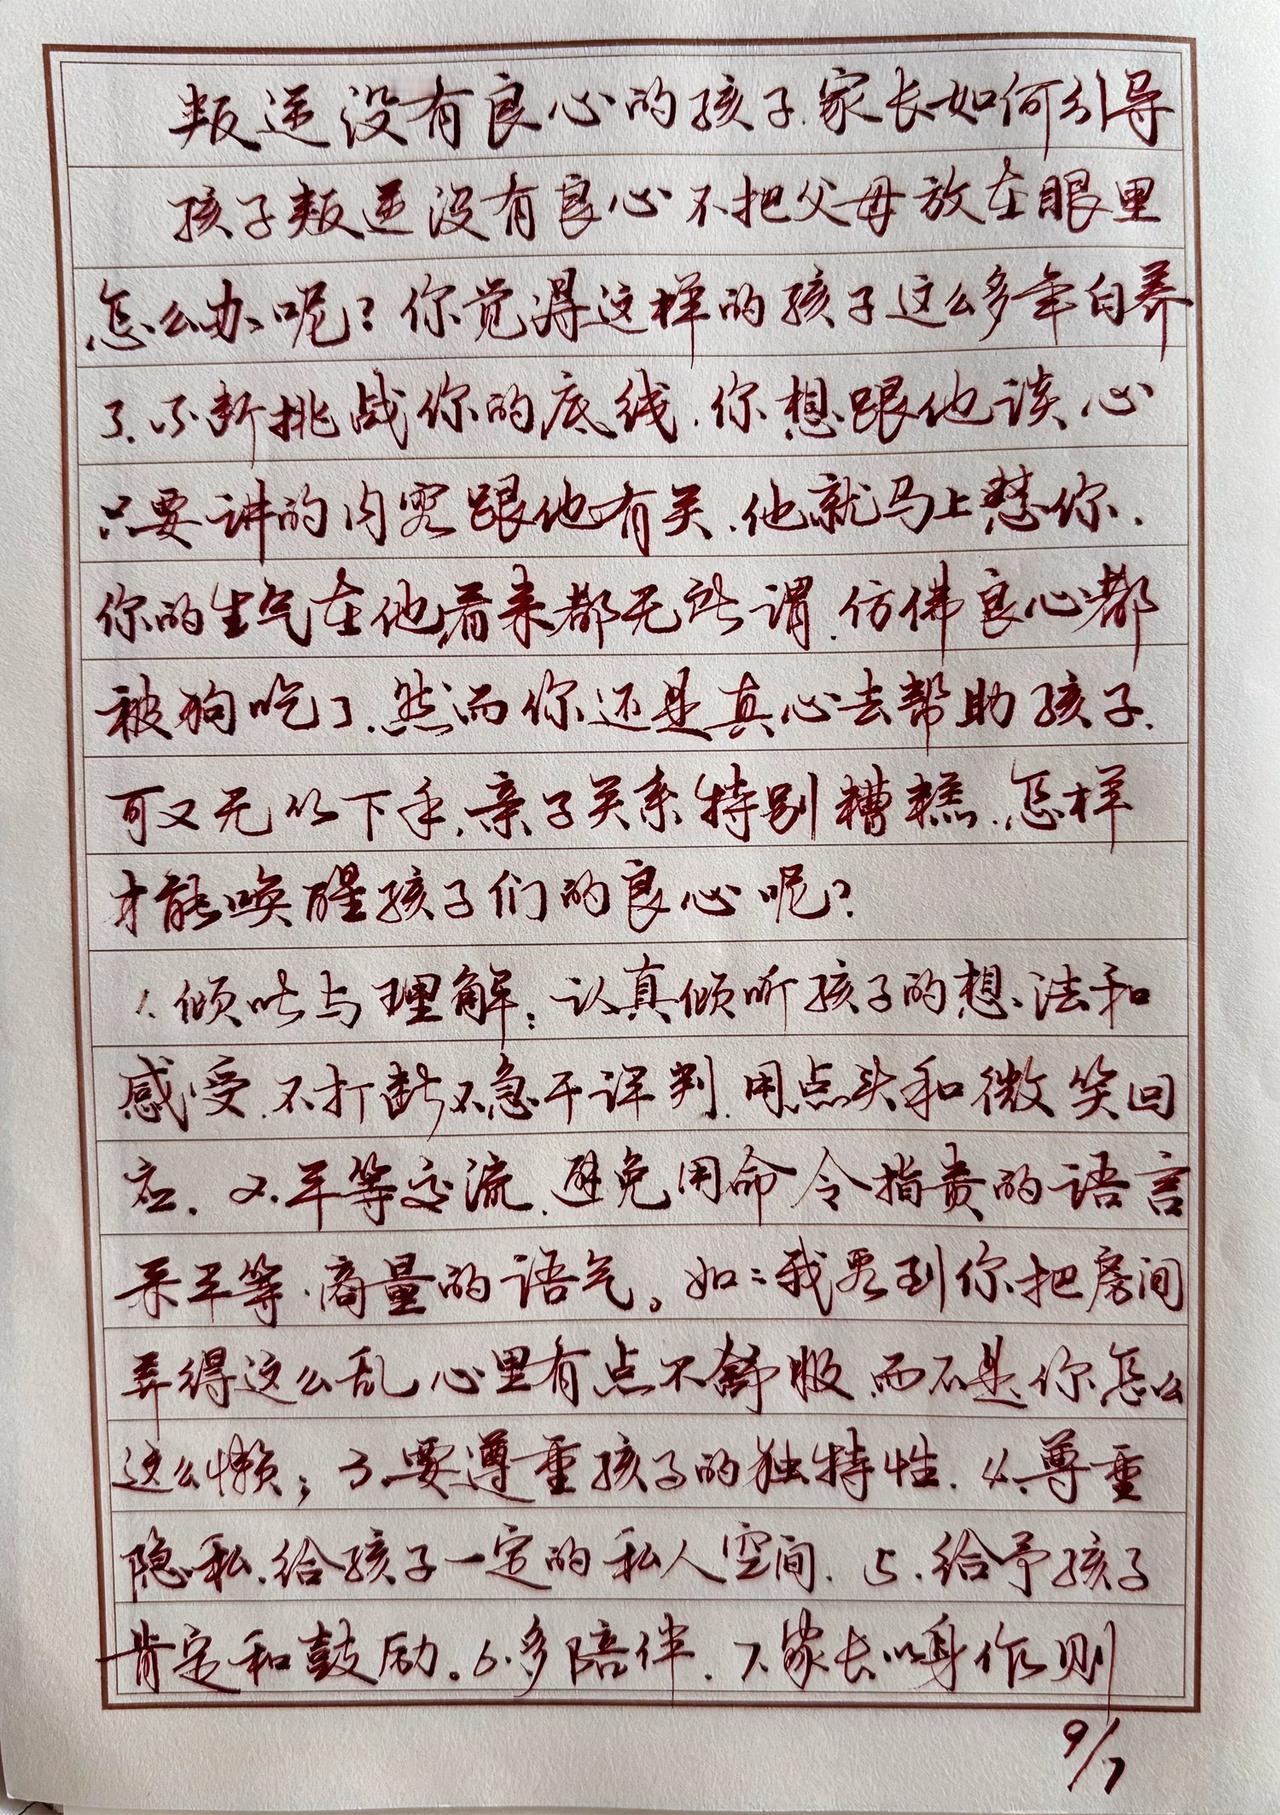 叛逆没有良心的孩子.家长如何引导
孩子叛逆没有良心不把父母放在眼里
怎么办呢?你觉得这样的孩子这么多年白养
了.不断挑战你的底线.你想跟他谈心
只要讲的内容跟他有关.他就马上怼你.
你的生气在他看来都无所谓.仿佛良心都
被狗吃了.然而你还是真心去帮助孩子.
可又无从下手.亲子关系特别糟糕.怎样
才能唤醒孩子们的良心呢?
1.倾听与理解:认真倾听孩子的想法和
感受.不打断不急于评判.用点头和微笑回
应.2.平等交流.避免用命令指责的语言
采平等.商量的语气。如:我看到你把房间
弄得这么乱心里有点不舒服.而不是你怎么
这么懒;3.要遵重孩子的独特性.4.尊重
隐私.给孩子一定的私人空间.5.给予孩子
肯定和鼓励。6.多陪伴.7.家长以身作则
9/7